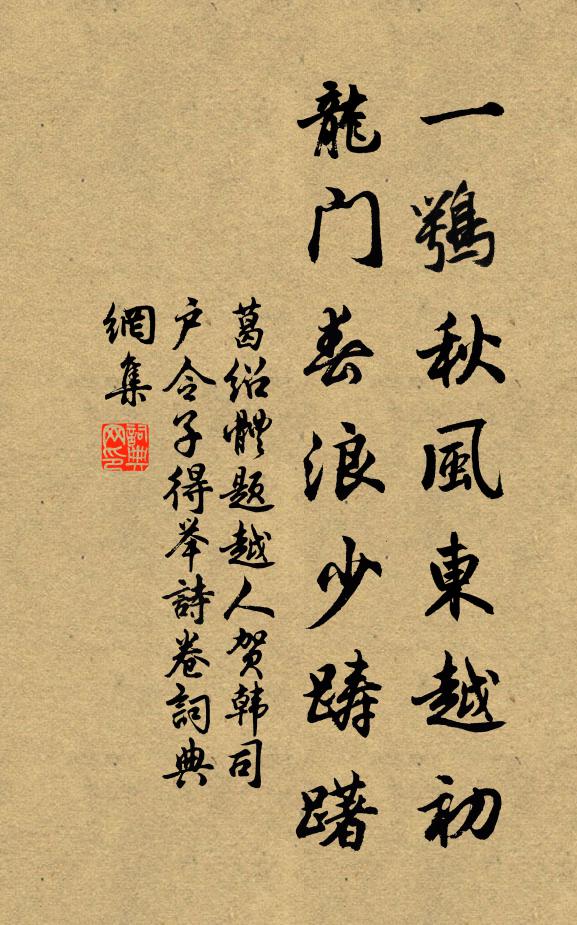 一鶚秋風東越初
龍门春浪少踌躇
葛绍體题越人贺韩司
户令子得举詩卷詞典
網集
詞典
网印